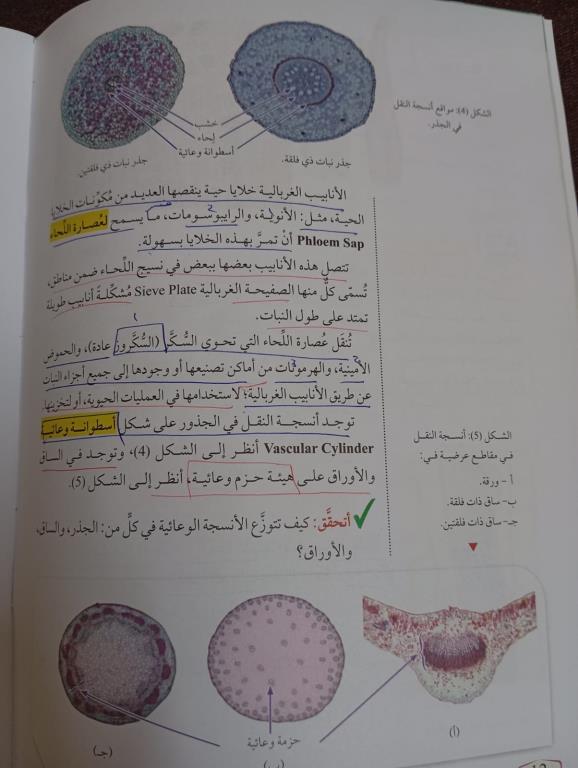 الشكل (4): مواقع أنسجة النقل
في الجذر.
خشب
لحاء
أسطوانة وعائية
جذر نبات ذي فلقة.
جذر نبات ذي فلقتين.
الأنابيب الغربالية خلايا حية ينقصها العديد من مُكوِّنات الخلايا
الحية، مثل: الأنوية، والرايبوسومات، ما يسمح لعُصارة اللِّحاء
Phloem Sap أنْ تمرَّ بهذه الخلايا بسهولة.
تتصل هذه الأنابيب بعضها ببعض في نسيج اللِّحاء ضمن مناطق،
تُسمّى كلٌّ منها الصفيحة الغربالية Sieve Plate مُشكِّلةً أنابيب طويلة
تمتد على طول النبات.
تُنقَل عُصارة اللِّحاء التي تحوي السُّكَّر (السُّكَّروز عادة)، والحموض
الأمينية، والهرمونات من أماكن تصنيعها أو وجودها إلى جميع أجزاء النبات
عن طريق الأنابيب الغربالية؛ لاستخدامها في العمليات الحيوية، أو لتخزينها.
توجد أنسجة النقل في الجذور على شكل أسطوانة وعائية
Vascular Cylinder أنظر إلى الشكل (4)، وتوجد في الساق
والأوراق على هيئة حزم وعائية، أنظر إلى الشكل (5).
أتحقَّق: كيف تتوزَّع الأنسجة الوعائية في كلٍّ من: الجذر، والساق،
والأوراق؟
الشكل (5): أنسجة النقل
في مقاطع عرضية في:
أ - ورقة.
ب- ساق ذات فلقة.
جـ- ساق ذات فلقتين.
حزمة وعائية
(أ)
(ب)
(جـ)